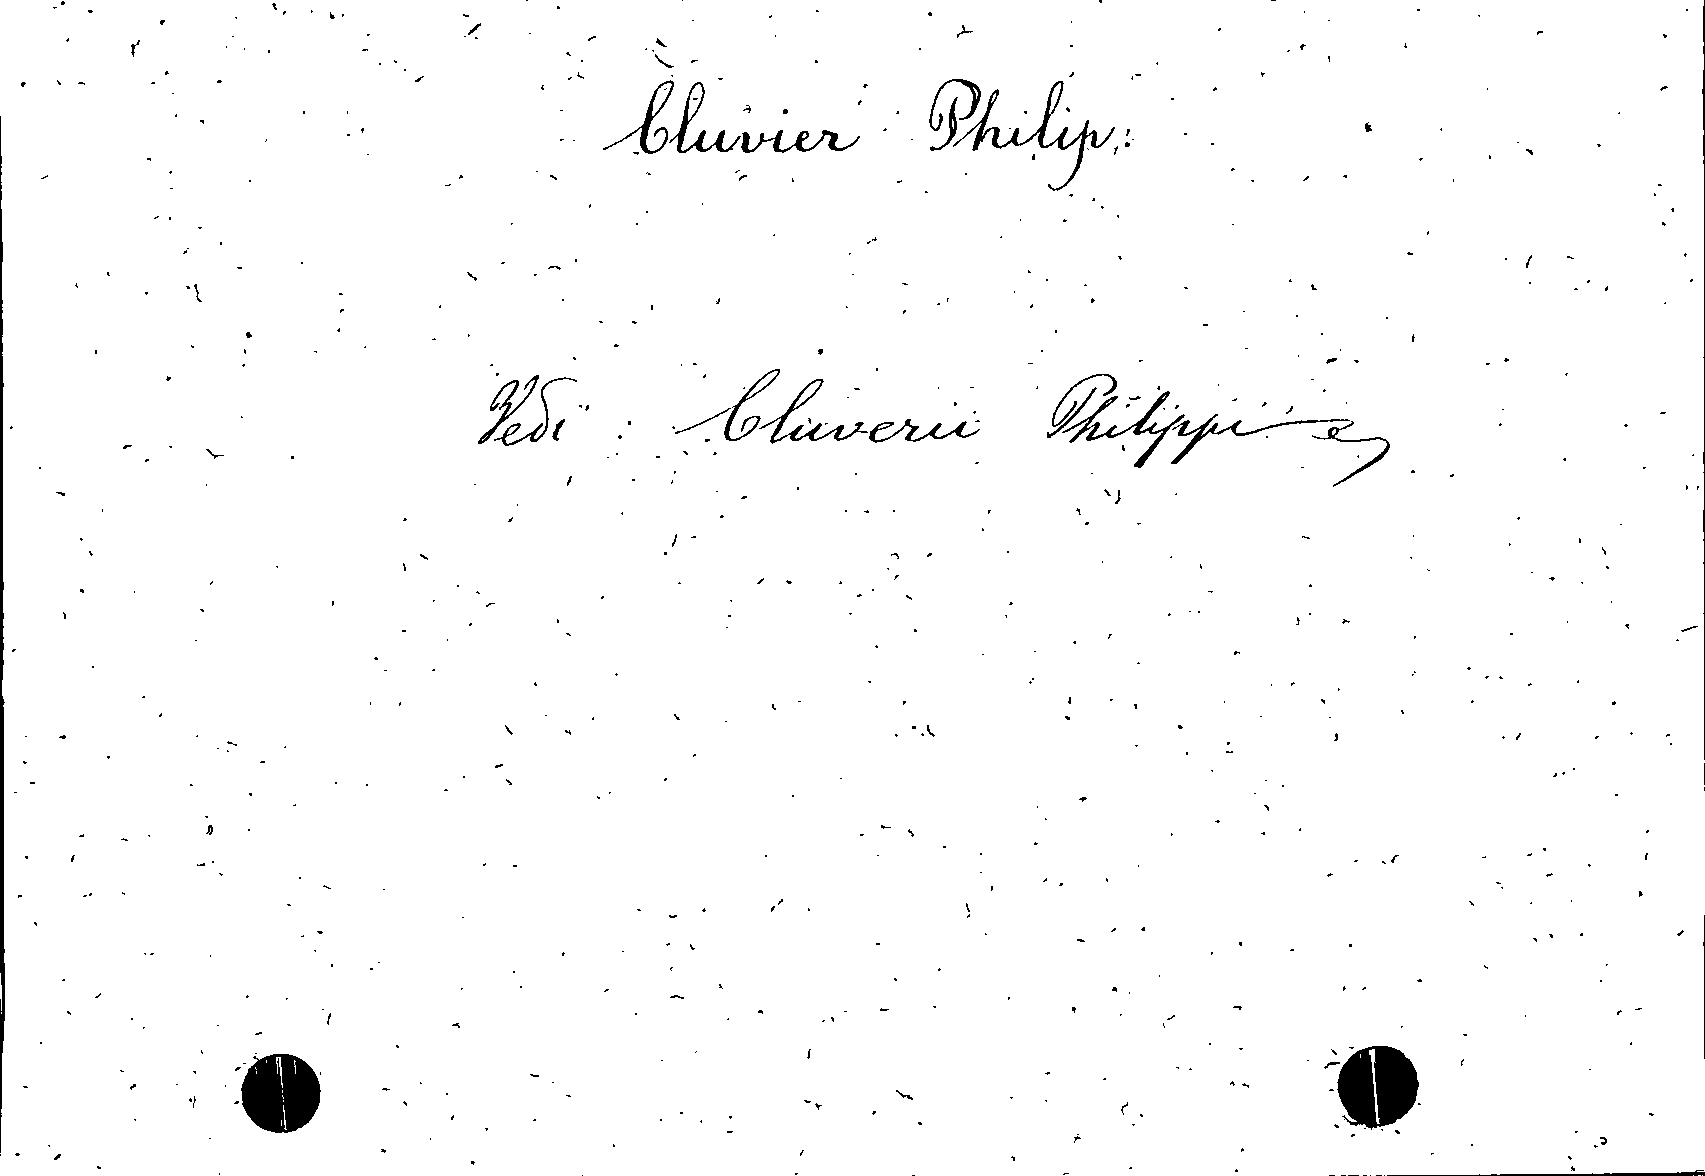 Cluvier Philip:
Vedi: Cluverii Philippi